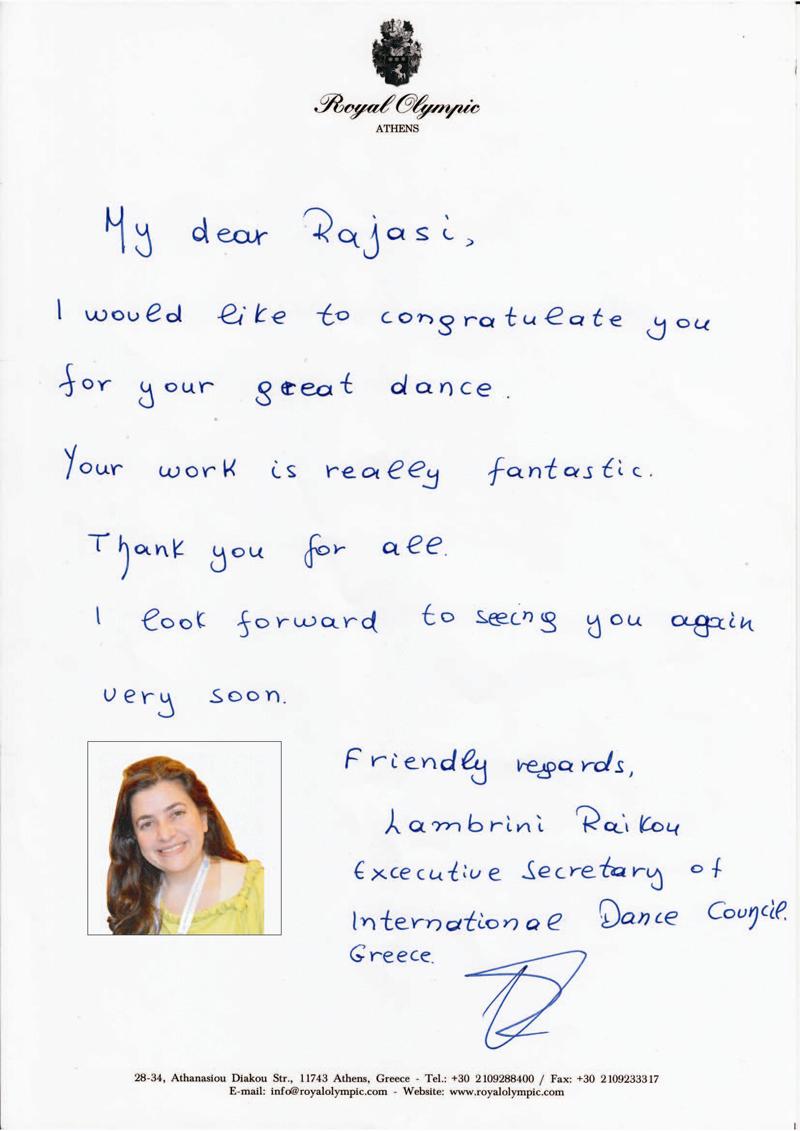 Royal Olympic
ATHENS
My dear Rajasi,
I would like to congratulate you
for your great dance.
Your work is really fantastic.
Thank you for all.
I look forward to seeing you again
very soon.
Friendly regards,
Lambrini Raikou
Excecutive Secretary of
International Dance Council.
Greece.
28-34, Athanasiou Diakou Str., 11743 Athens, Greece - Tel.: +30 2109288400 / Fax: +30 2109233317
E-mail: info@royalolympic.com - Website: www.royalolympic.com